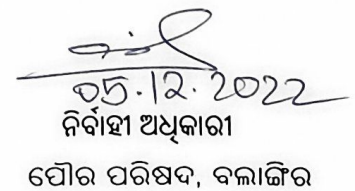 05.12.2022
ନିର୍ବାହୀ ଅଧିକାରୀ
ପୌର ପରିଷଦ, ବଲାଙ୍ଗିର